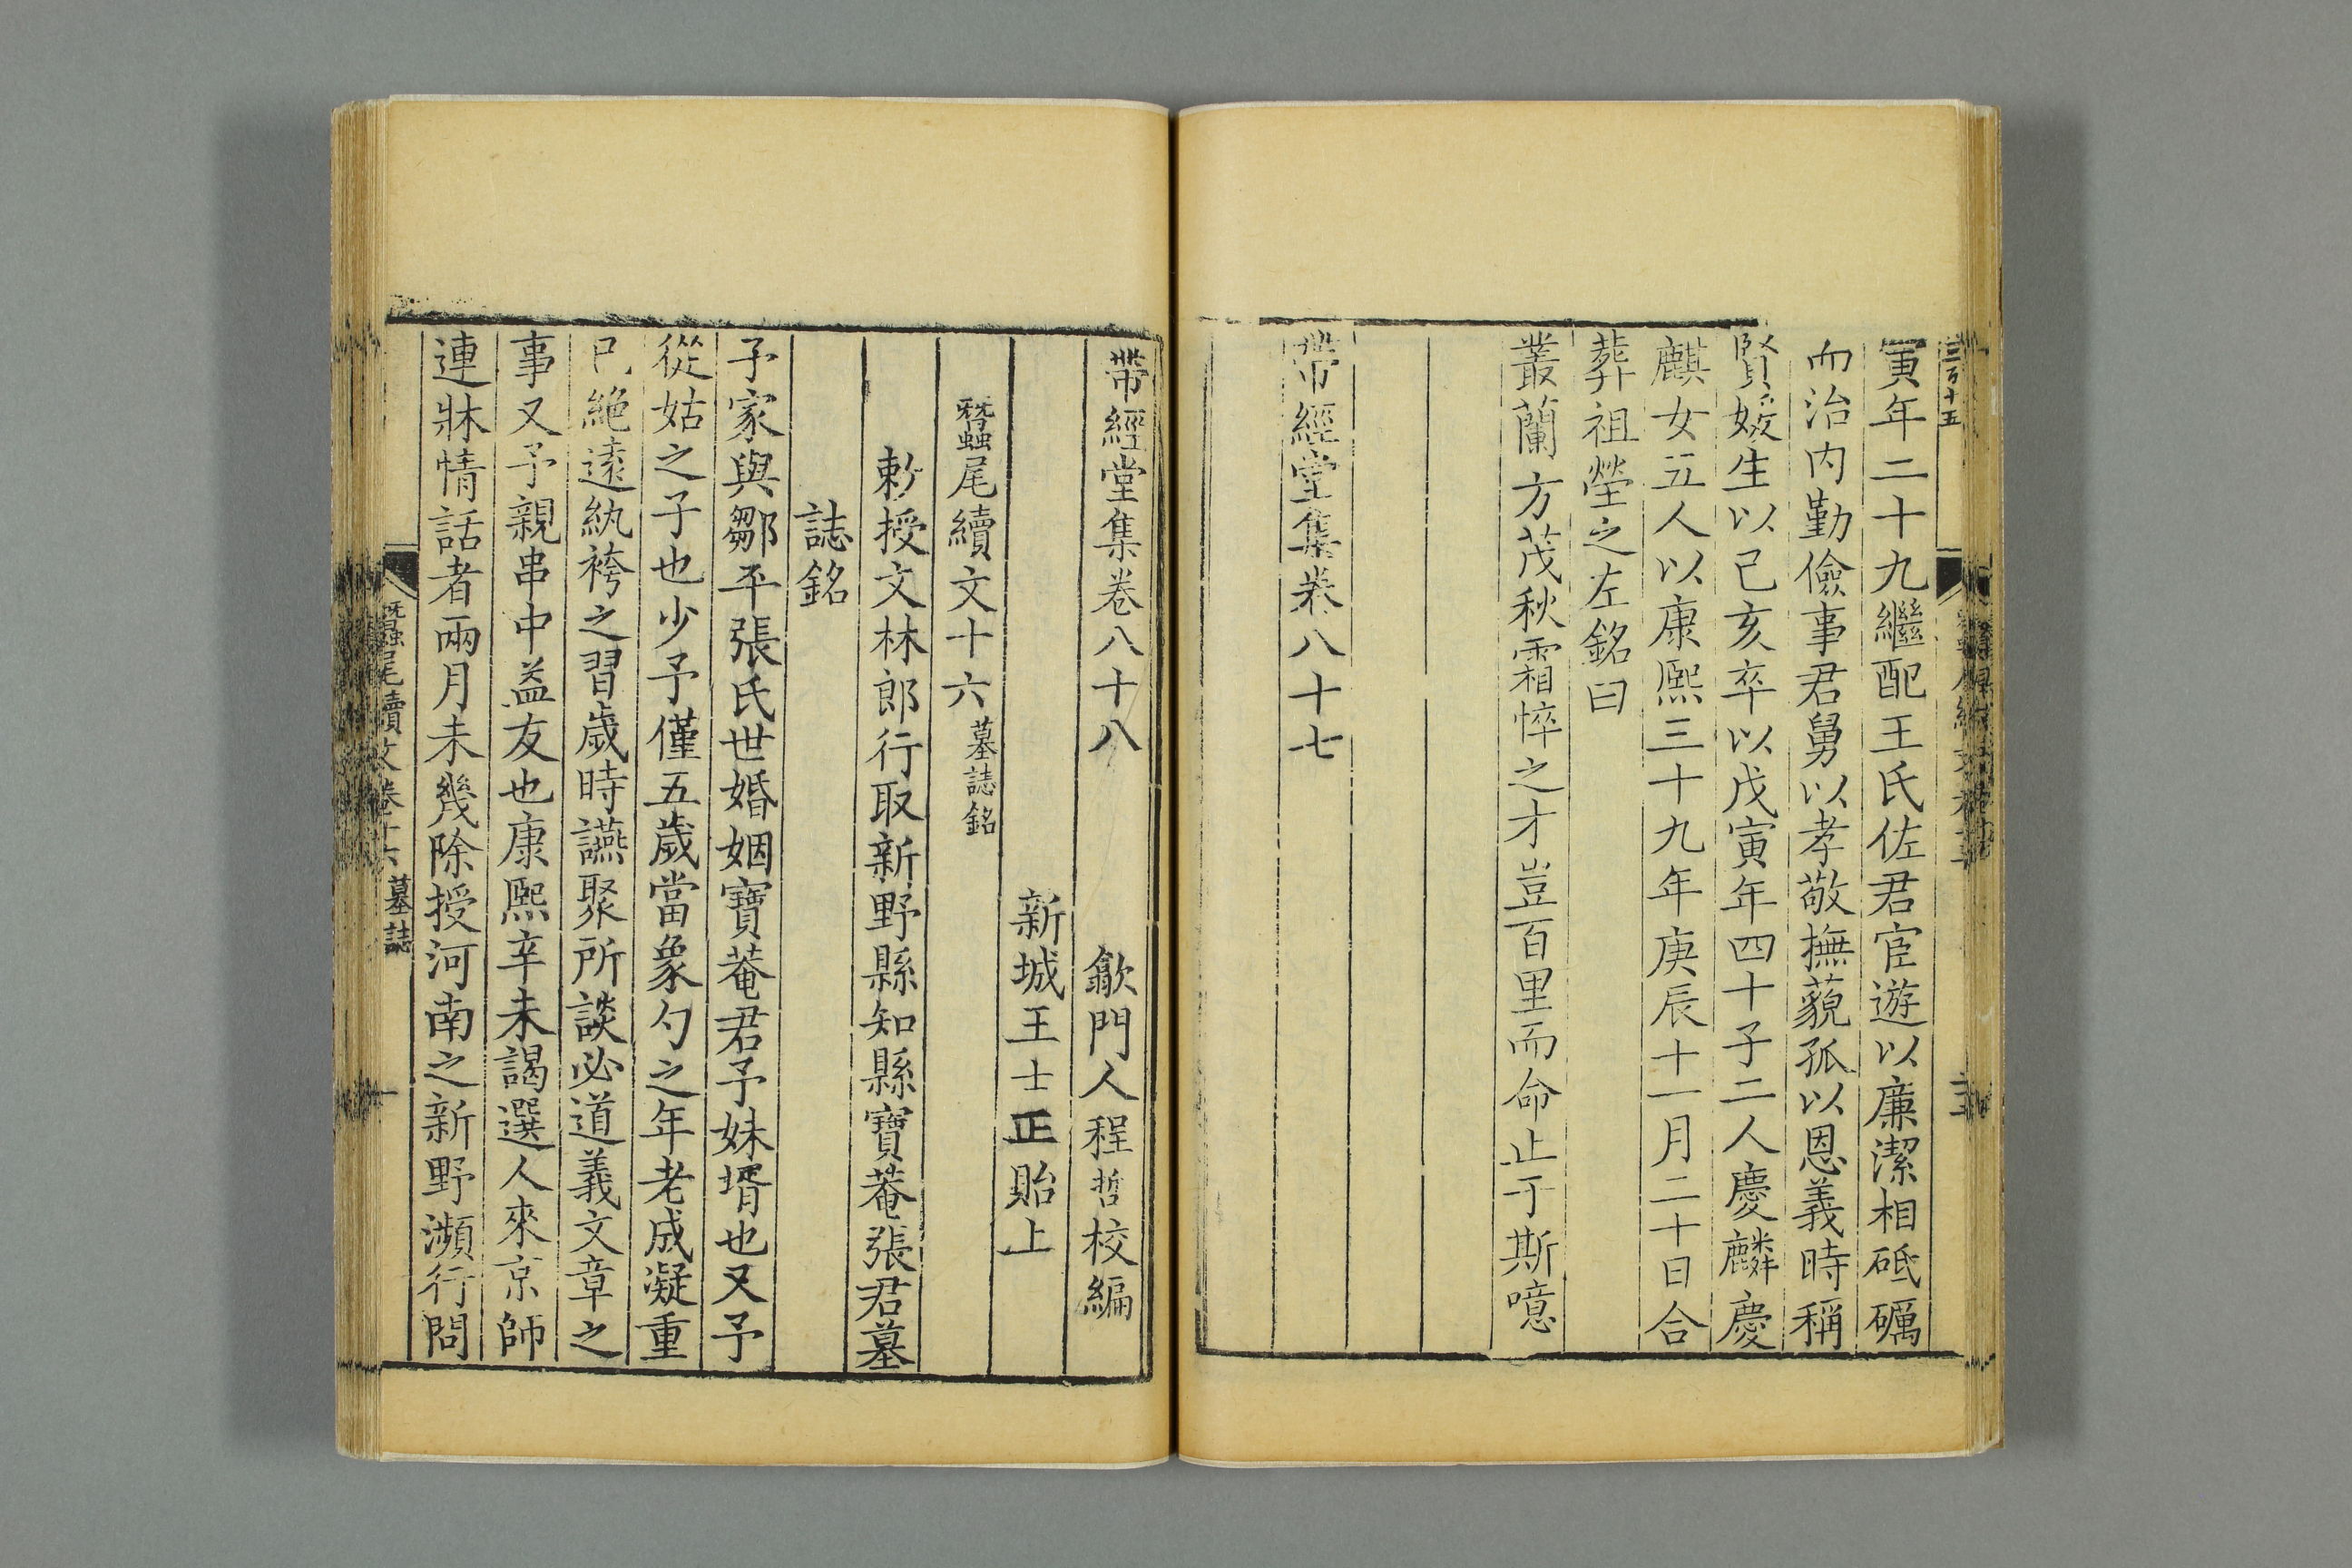 三百十五
寅年二十九繼配王氏佐君宦遊以廉潔相砥礪
而治内勤儉事君舅以孝敬撫藐孤以恩義時稱
賢媛生以己亥卒以戊寅年四十子二人慶麟慶
麒女五人以康熙三十九年庚辰十一月二十日合
葬祖塋之左銘曰
叢蘭方茂秋霜悴之才豈百里而命止于斯噫
帶經堂集卷八十七
帶經堂集卷八十八 歙門人程哲校編
新城王士正貽上
蠶尾續文十六 墓誌銘
敕授文林郎行取新野縣知縣寶菴張君墓
誌銘
予家與鄒平張氏世婚姻寶菴君予妹壻也又予
從姑之子也少予僅五歲當象勺之年老成凝重
已絶遠紈袴之習歲時讌聚所談必道義文章之
事又予親串中益友也康熙辛未謁選人來京師
連牀情話者兩月未幾除授河南之新野瀕行問
蠶尾續文卷十六 墓誌 一